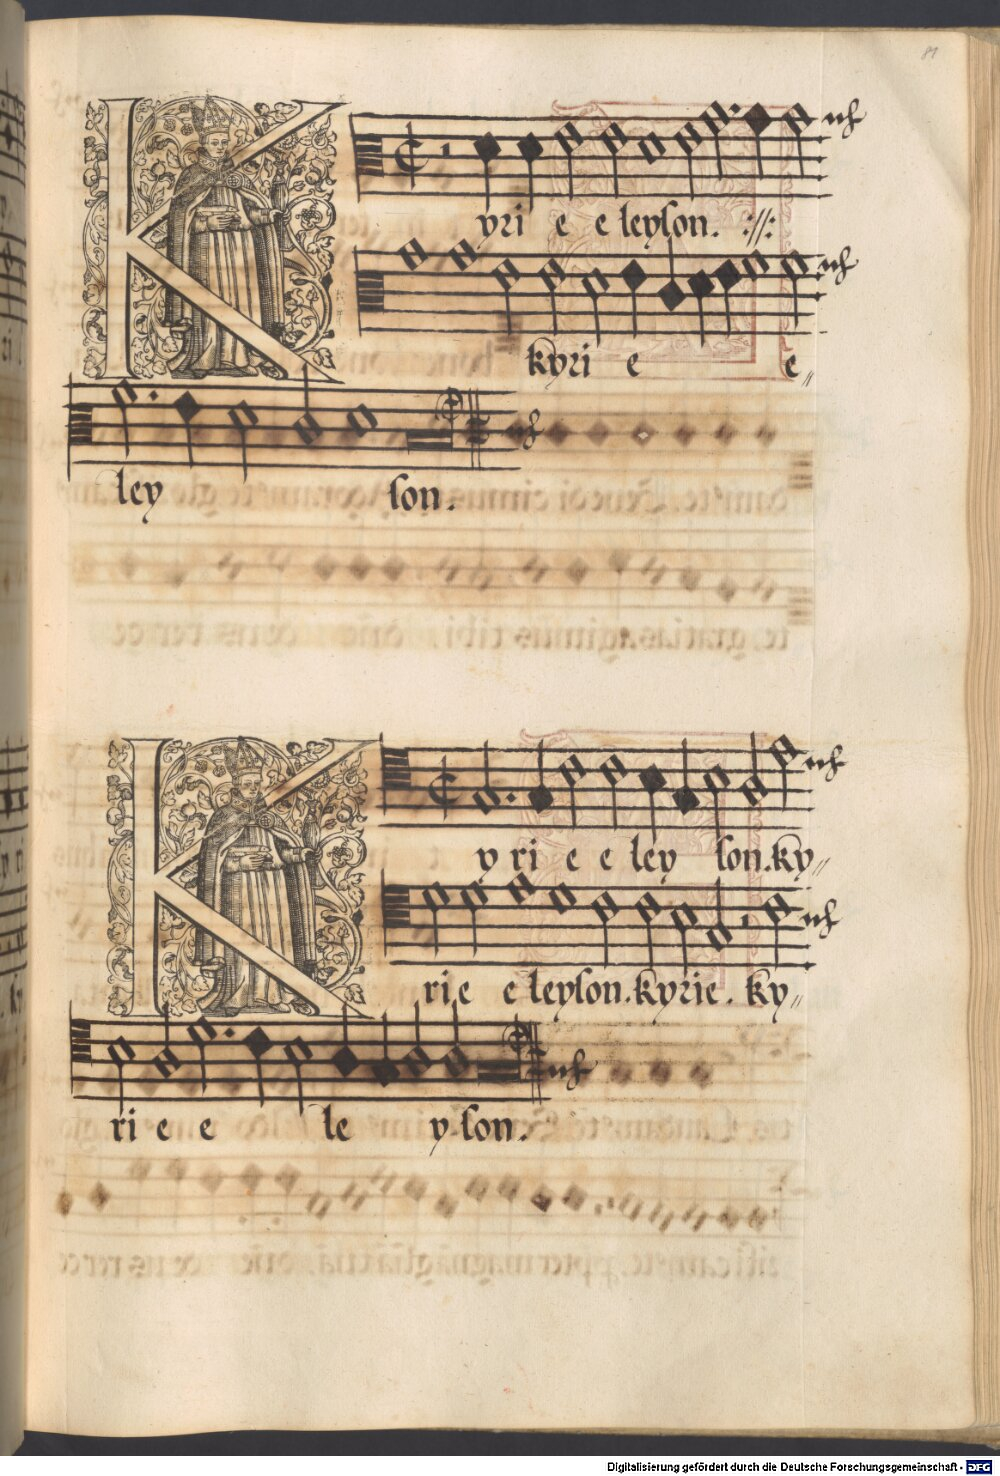 81
K yri e e leyson. :||:
kyri e e〃
ley son.
K y ri e e ley son. ky〃
ri e e leyson. kyrie. ky〃
ri e e le y son.
Digitalisierung gefördert durch die Deutsche Forschungsgemeinschaft - DFG